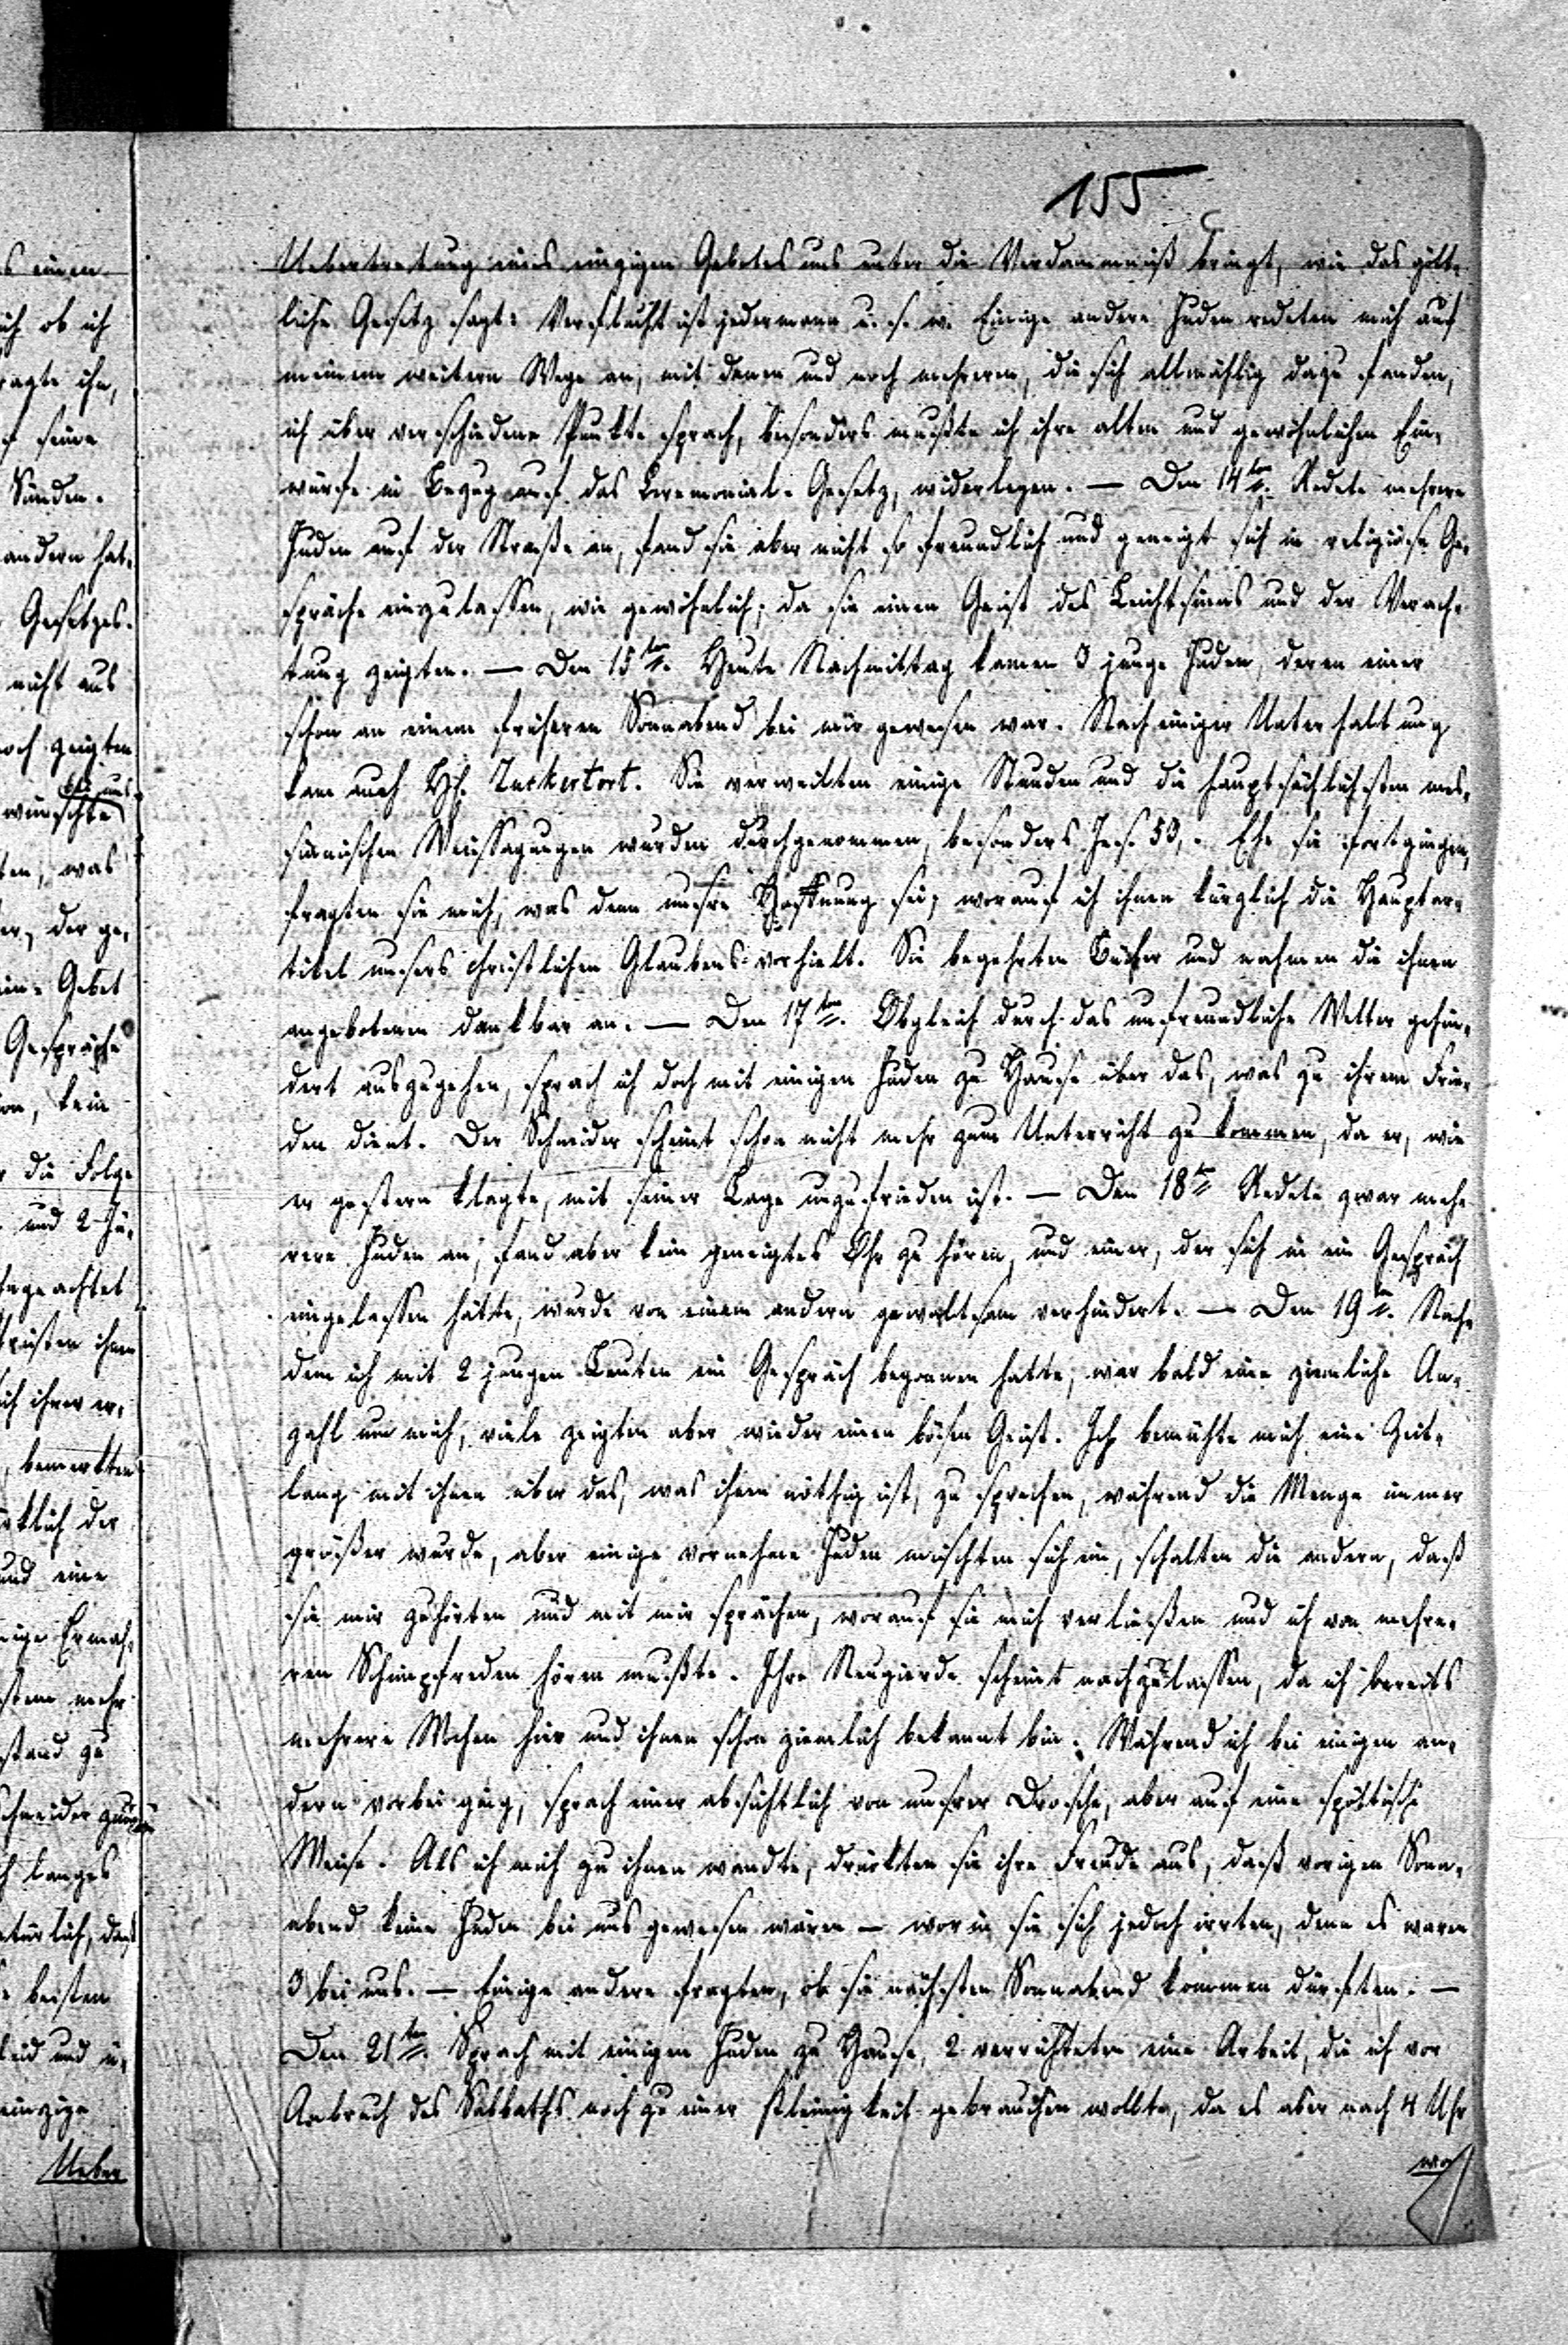 155
Uebertretung eines einzigen Gebotes uns unter die Verdammniß bringt, wie das gött-
liche Gesetz sagt: Verflucht ist jedermann u. s. w. Einige andere Juden redeten mich auf
meinem weitern Wege an, mit denen und noch mehreren, die sich allmählig dazu fanden,
ich über verschiedene Punkte sprach, besonders mußte ich ihre alten und gewöhnlichen Ein-
würfe in Bezug auf das Ceremonial-Gesetz, widerlegen. — Den 14ten. Redete mehrere
Juden auf der Straße an, fand sie aber nicht so freundlich und geneigt sich in religiöse Ge-
spräche einzulassen, wie gewöhnlich; da sie einen Geist des Leichtsinns und der Verach-
tung zeigten. — Den 15ten. Heute Nachmittag kamen 3 junge Juden, deren einer
schon an einem früheren Sonnabend bei mir gewesen war. Nach einiger Unterhaltung
kam auch Zuckertort. Sie verweilten einige Stunden und die hauptsächlichsten mes-
sianischen Weissagungen wurden durchgenommen, besonders Jes. 53,. Ehe sie fortgingen,
fragten sie mich, was denn unsre Hoffnung sei, worauf ich ihnen kürzlich die Hauptar-
tikel unsers christlichen Glaubens vorhielt. Sie begehrten Bücher und nahmen die ihnen
angebotenen dankbar an. — Den 17ten. Obgleich durch das unfreundliche Wetter gehin-
dert auszugehen, sprach ich doch mit einigen Juden zu Hause über das, was zu ihrem Frie-
den dient. Der Schneider scheint schon nicht mehr zum Unterricht zu kommen, da er, wie
er gestern klagte, mit seiner Lage unzufrieden ist. — Den 18ten Redete zwar meh-
rere Juden an, fand aber kein geneigtes Ohr zu hören, und einer, der sich in ein Gespräch
eingelassen hätte, wurde von einem andern gewaltsam verhindert. — Den 19ten. Nach-
dem ich mit 2 jungen Leuten ein Gespräch begonnen hatte, war bald eine ziemliche An-
zahl um mich, viele zeigten aber wieder einen bösen Geist. Ich bemühte mich eine Zeit-
lang mit ihnen über das, was ihnen nöthig ist, zu sprechen, während die Menge immer
größer wurde, aber einige vornehme Juden mischten sich ein, schalten die andern, daß
sie mir zuhörten und mit mir sprächen, worauf sie mich verließen und ich von mehre-
ren Schimpfreden hören mußte. Ihre Neugierde scheint nachzulassen, da ich bereits
mehrere Wochen hier und ihnen schon ziemlich bekannt bin. Während ich bei einigen an-
dern vorbei ging, sprach einer absichtlich von unsrer Drosche, aber auf eine spöttische
Weise. Als ich mich zu ihnen wandte, drückten sie ihre Freude aus, daß vorigen Sonn-
abend keine Juden bei uns gewesen wären — worin sie sich jedoch irrten, denn es waren
3 bei uns. — Einige andere fragten, ob sie nächsten Sonnabend kommen dürften. —
Den 21ten. Sprach mit einigen Juden zu Hause, 2 verrichteten eine Arbeit, die ich vor
Anbruch des Sabbaths noch zu einer Kleinigkeit gebrauchen wollte, da es aber nach 4 Uhr
war
s einen
ich ob ich
ragte ihn,
f seine
Sünden.
andern hat-
Gesetzes.
nicht aus
noch zeigten
wünschte
ten, was
er, der ge-
ein. Gebet
Gespräche
on, kein
r die Folge
und 2 Jü-
ch ihrer er-
, bemerkten
und eine
nige Ermah-
stand zu
chneider
h langes
türlich, daß
leid und ü-
einzige
Ueber